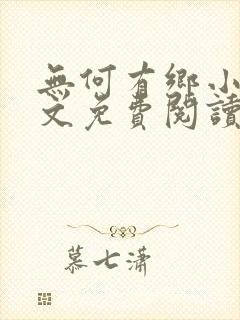 無何有鄉小
文免費閱讀
慕七潇